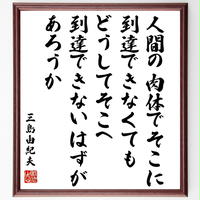 人間の肉体でそこに
到達できなくても
どうしてそこへ
到達できないはずが
あろうか
三島由紀夫